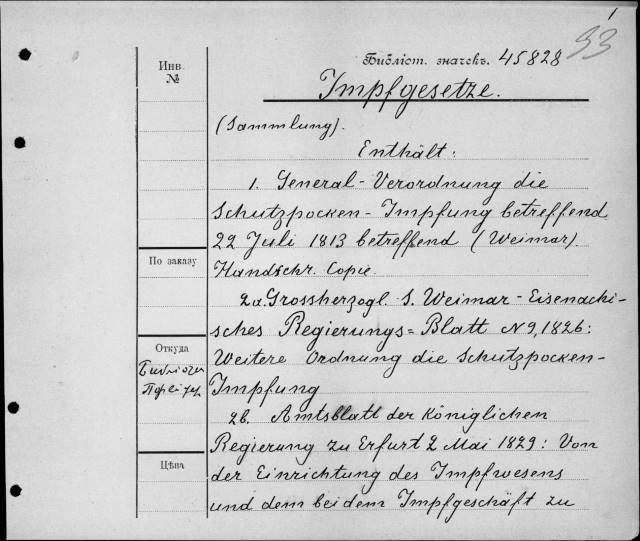 1
Инв.
№
Библіот. значекъ. 45828
93
Impfgesetze.
(Sammlung).
Enthält:
1. General-Verordnung die
Schutzpocken-Impfung betreffend
22 Juli 1813 betreffend (Weimar).
По заказу
Handschr. Copie
2a. Grossherzogl. S. Weimar-Eisenachi-
sches Regierungs=Blatt N 9, 1826:
Откуда
Weitere Ordnung die Schutzpocken-
Impfung
2b. Amtsblatt der Königlichen
Regierung zu Erfurt 2 Mai 1829: Von
Цѣна
der Einrichtung des Impfwesens
und dem bei dem Impfgeschäft zu